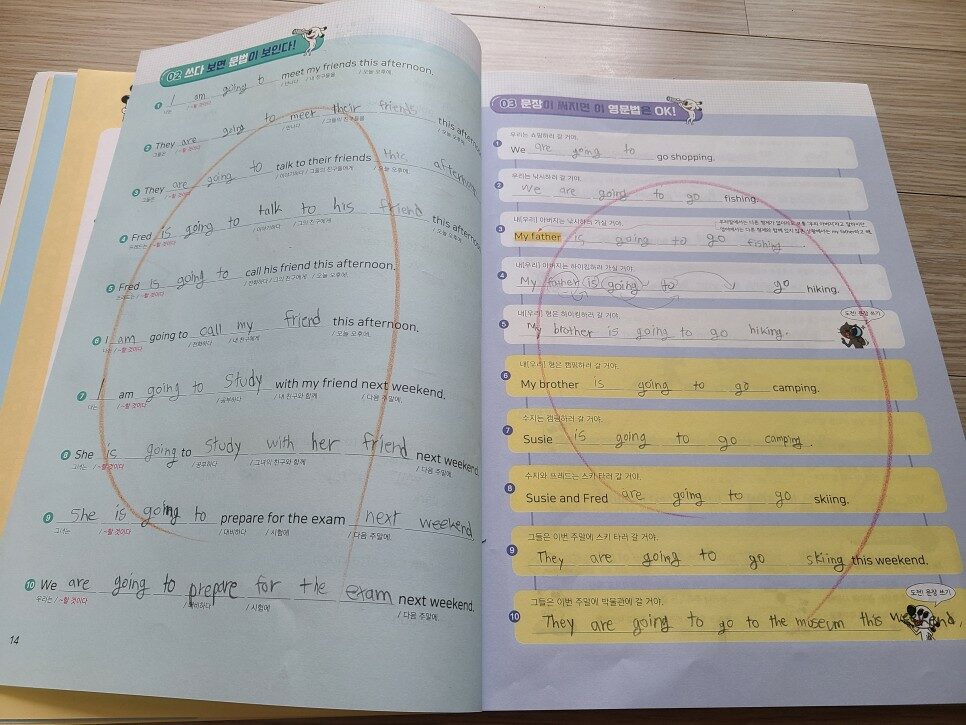 02 쓰다 보면 문법이 보인다!
1 I am going to meet my friends this afternoon.
나는 / ~할 것이다 / 만나다 / 내 친구들을 / 오늘 오후에.
2 They are going to meet their friends this afternoon
그들은 / ~할 것이다 / 만나다 / 그들의 친구들을 / 오늘 오후에.
3 They are going to talk to their friends this afternoon
그들은 / ~할 것이다 / 이야기하다 / 그들의 친구들에게 / 오늘 오후에.
4 Fred is going to talk to his friend this afternoon
프레드는 / ~할 것이다 / 이야기하다 / 그의 친구에게 / 오늘 오후에.
5 Fred is going to call his friend this afternoon.
프레드는 / ~할 것이다 / 전화하다 / 그의 친구에게 / 오늘 오후에.
6 I am going to call my friend this afternoon.
나는 / ~할 것이다 / 전화하다 / 내 친구에게 / 오늘 오후에.
7 I am going to study with my friend next weekend.
나는 / ~할 것이다 / 공부하다 / 내 친구와 함께 / 다음 주말에.
8 She is going to study with her friend next weekend.
그녀는 / ~할 것이다 / 공부하다 / 그녀의 친구와 함께 / 다음 주말에.
9 She is going to prepare for the exam next weekend.
그녀는 / ~할 것이다 / 대비하다 / 시험에 / 다음 주말에.
10 We are going to prepare for the exam next weekend.
우리는 / ~할 것이다 / 대비하다 / 시험에 / 다음 주말에.
14
03 문장이 써지면 이 영문법은 OK!
1 우리는 쇼핑하러 갈 거야.
We are going to go shopping.
2 우리는 낚시하러 갈 거야.
We are going to go fishing.
3 내[우리] 아버지는 낚시하러 가실 거야.
My father is going to go fishing
4 내[우리] 아버지는 하이킹하러 가실 거야.
My father is going to go hiking.
5 내[우리] 형은 하이킹하러 갈 거야.
도전! 문장 쓰기
My brother is going to go hiking.
6 내[우리] 형은 캠핑하러 갈 거야.
My brother is going to go camping.
7 수지는 캠핑하러 갈 거야.
Susie is going to go camping.
8 수지와 프레드는 스키 타러 갈 거야.
Susie and Fred are going to go skiing.
9 그들은 이번 주말에 스키 타러 갈 거야.
They are going to go skiing this weekend.
10 그들은 이번 주말에 박물관에 갈 거야.
도전! 문장 쓰기
They are going to go to the museum this weekend.